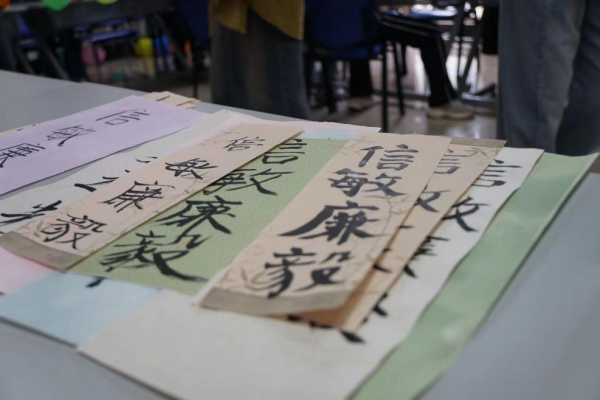 信敏廉
信敏廉毅
信敏廉毅
信敏廉毅
信敏
信敏